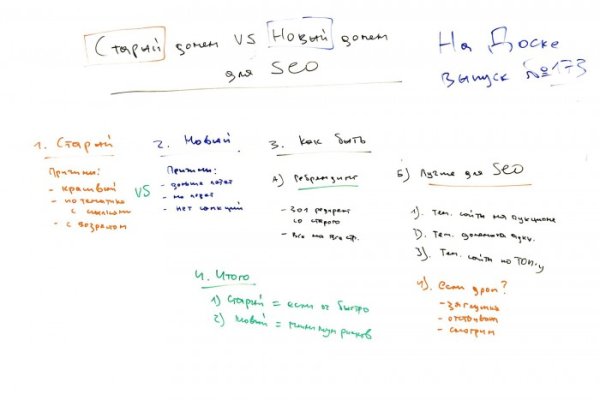 Старый домен VS Новый домен
для SEO
На Доске
выпуск №173
1. Старый
Причины:
- красивый
- по тематике
с ссылками
- с возрастом
VS
2. Новый
Причины:
- дольше
- нет санкций
3. Как быть
А) Ребрендинг
- 301 редирект
со старого
- Все на все стр.
Б) Лучше для SEO
1). Тем. сайты на аукционе
2). Тем. домена аукц.
3). Тем. сайты по ТОП-у
4). если дроп?
- заглушка
- отстаиваем
- смотрим
4. Итого
1) Старый = если ог быстро
2) Новый = минимум рисков